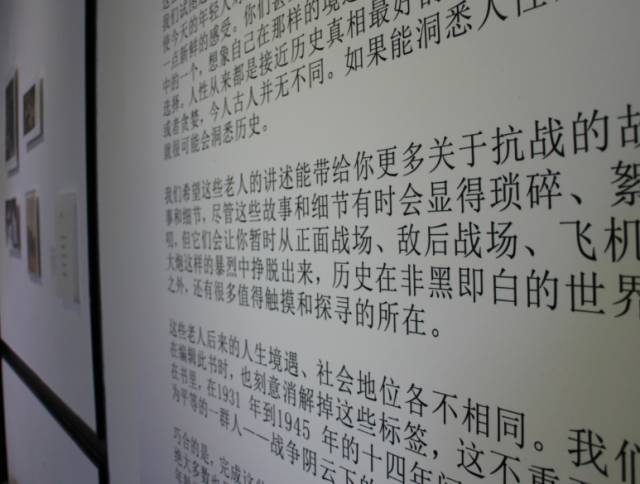 一点新鲜的感受。你们甚
中的一个，想象自己在那样的境遇
选择。人性从来都是接近历史真相最好的
或者贪婪，今人古人并无不同。如果能洞悉人性
就很可能会洞悉历史。
我们希望这些老人的讲述能带给你更多关于抗战的故
事和细节，尽管这些故事和细节有时会显得琐碎、絮
叨，但它们会让你暂时从正面战场、敌后战场、飞机
大炮这样的暴烈中挣脱出来，历史在非黑即白的世界
之外，还有很多值得触摸和探寻的所在。
这些老人后来的人生境遇、社会地位各不相同。我们
在编辑此书时，也刻意消解掉这些标签，这不重
在书里，在1931 年到1945 年的十四年间
为平等的一群人——战争阴云下的
巧合的是，完成这